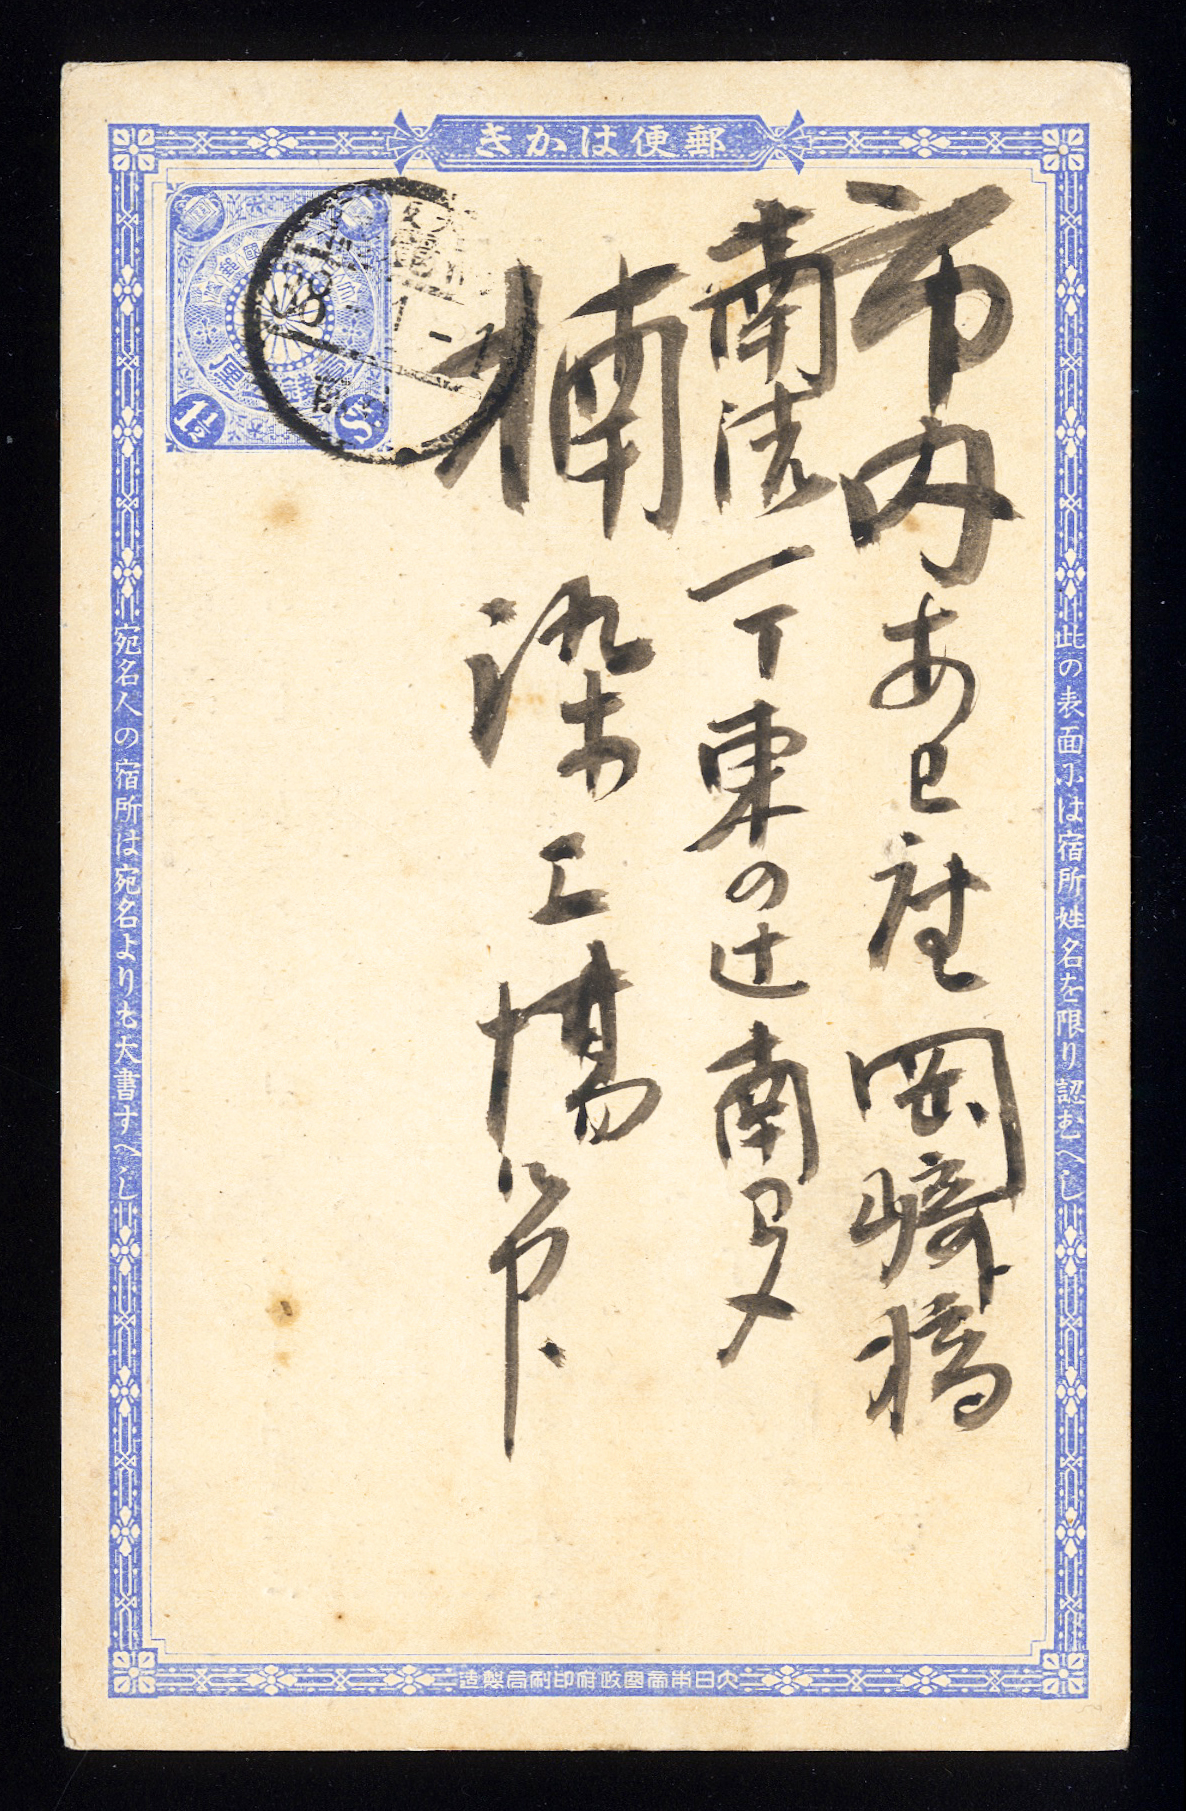 郵便はかき
此の表面には宿所姓名を限り認むへし
市内あミ座岡崎橋
南詰一丁東の辻南ヨメ
楠染工場御中
1½ S
厘
宛名人の宿所は宛名よりも大書すへし
大日本帝國政府印刷局製造